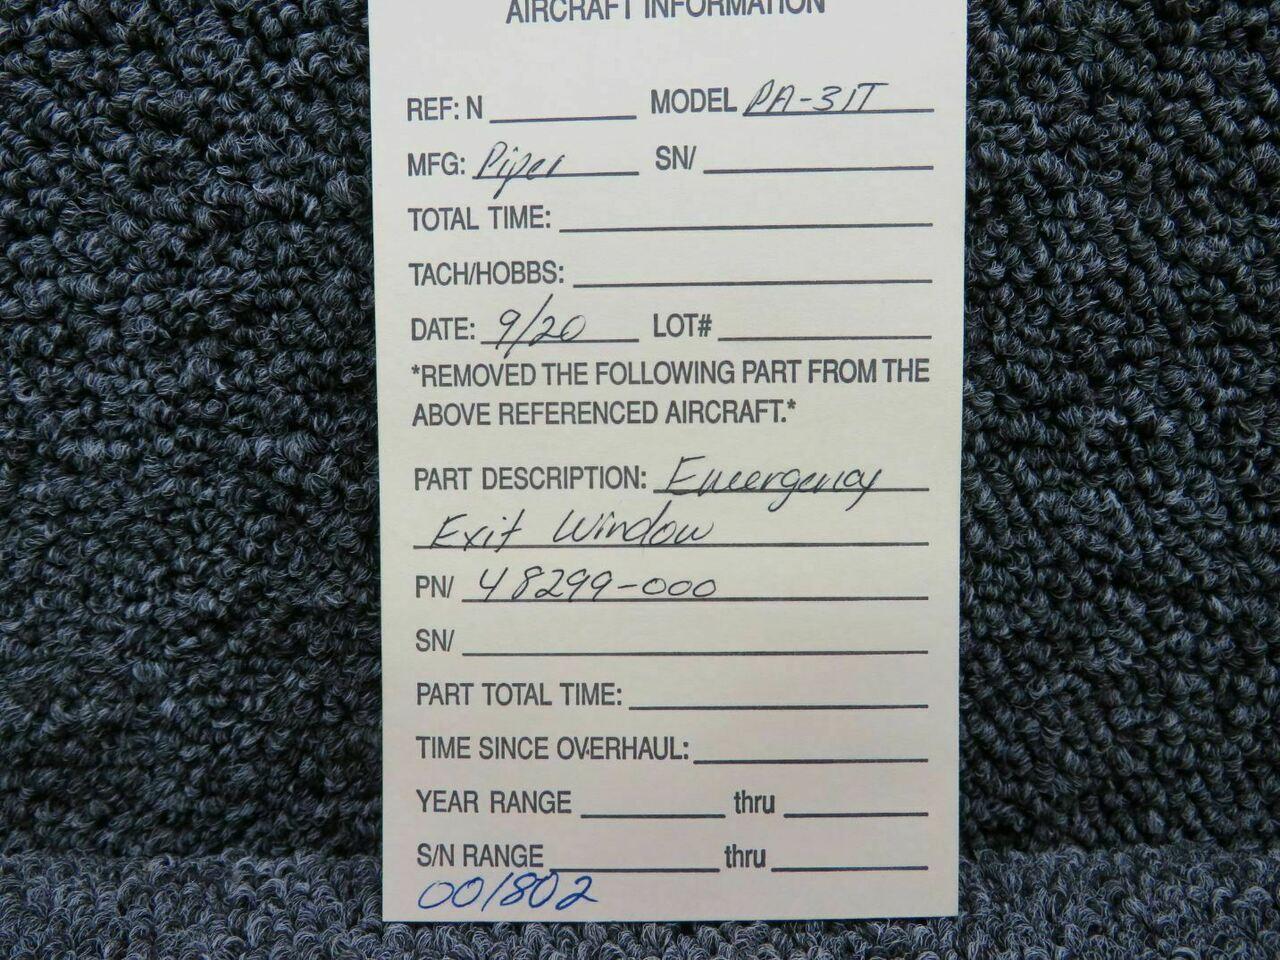 AIRCRAFT INFORMATION
REF: N MODEL PA-31T
MFG: Piper SN/
TOTAL TIME:
TACH/HOBBS:
DATE: 9/20 LOT#
*REMOVED THE FOLLOWING PART FROM THE
ABOVE REFERENCED AIRCRAFT.*
PART DESCRIPTION: Emergency
Exit Window
PN/ 48299-000
SN/
PART TOTAL TIME:
TIME SINCE OVERHAUL:
YEAR RANGE thru
S/N RANGE thru
001802